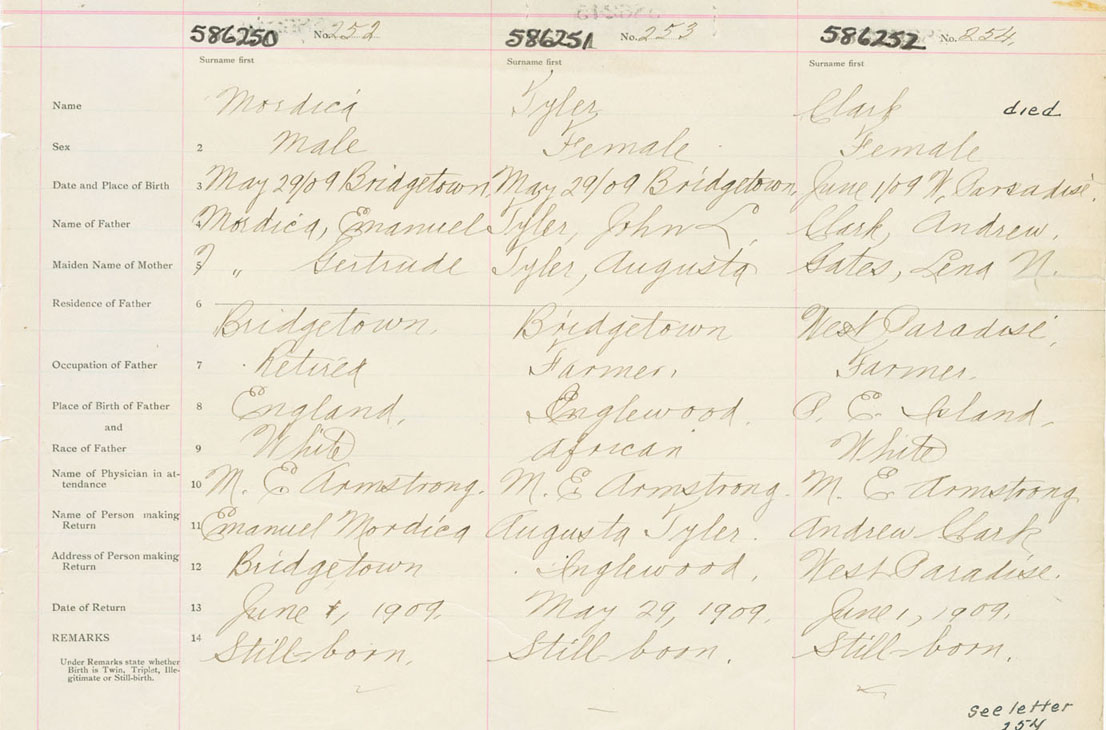 586250 No. 252 586251 No. 253 586252 No. 254.
Surname first Surname first Surname first
Name Mordica Tyler Clark died
Sex 2 Male Female Female
Date and Place of Birth 3 May 29/09 Bridgetown, May 29/09 Bridgetown, June 1/09 W. Paradise.
Name of Father 4 Mordica, Emanuel Tyler, John Clark, Andrew.
Maiden Name of Mother 5 ? " Gertrude Tyler, Augusta Gates, Lena N.
Residence of Father 6 Bridgetown. Bridgetown West Paradise,
Occupation of Father 7 Retired Farmer. Farmer.
Place of Birth of Father 8 England, Englewood. P. E. Island,
and
Race of Father 9 White African White
Name of Physician in at- 10 M. E. Armstrong. M. E. Armstrong. M. E. Armstrong
tendance
Name of Person making 11 Emanuel Mordica Augusta Tyler. Andrew Clark
Return
Address of Person making 12 Bridgetown Inglewood, West Paradise.
Return
Date of Return 13 June 1, 1909. May 29, 1909. June 1, 1909.
REMARKS 14 Still-born. Still-born. Still-born.
Under Remarks state whether
Birth is Twin, Triplet, Ille-
gitimate or Still-birth.
See letter
254